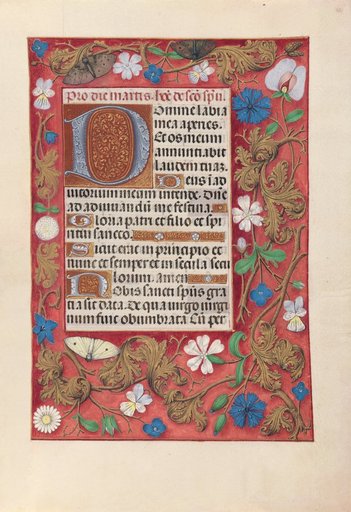 Pro die martis. hec de sco spu.
Domine labia
mea aperies.
Et os meum
annunciabit
laudem tuaz.
Deus i ad
iutorium meum intende. dne
ad adiuvandu me festina.
Gloria patri et filio et spi
ritui sancto.
Sicut erat in principio et
nunc et semper et in secula secu
lorum. amen
Nobis sancti spus gra
tia sit data. De qua virgo virgi
num fuit obumbrata Cu per